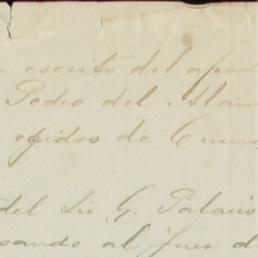 escrito del apod
Pedro del Alam
egidos de
del Lic. G. Palacio
sando al Juez d